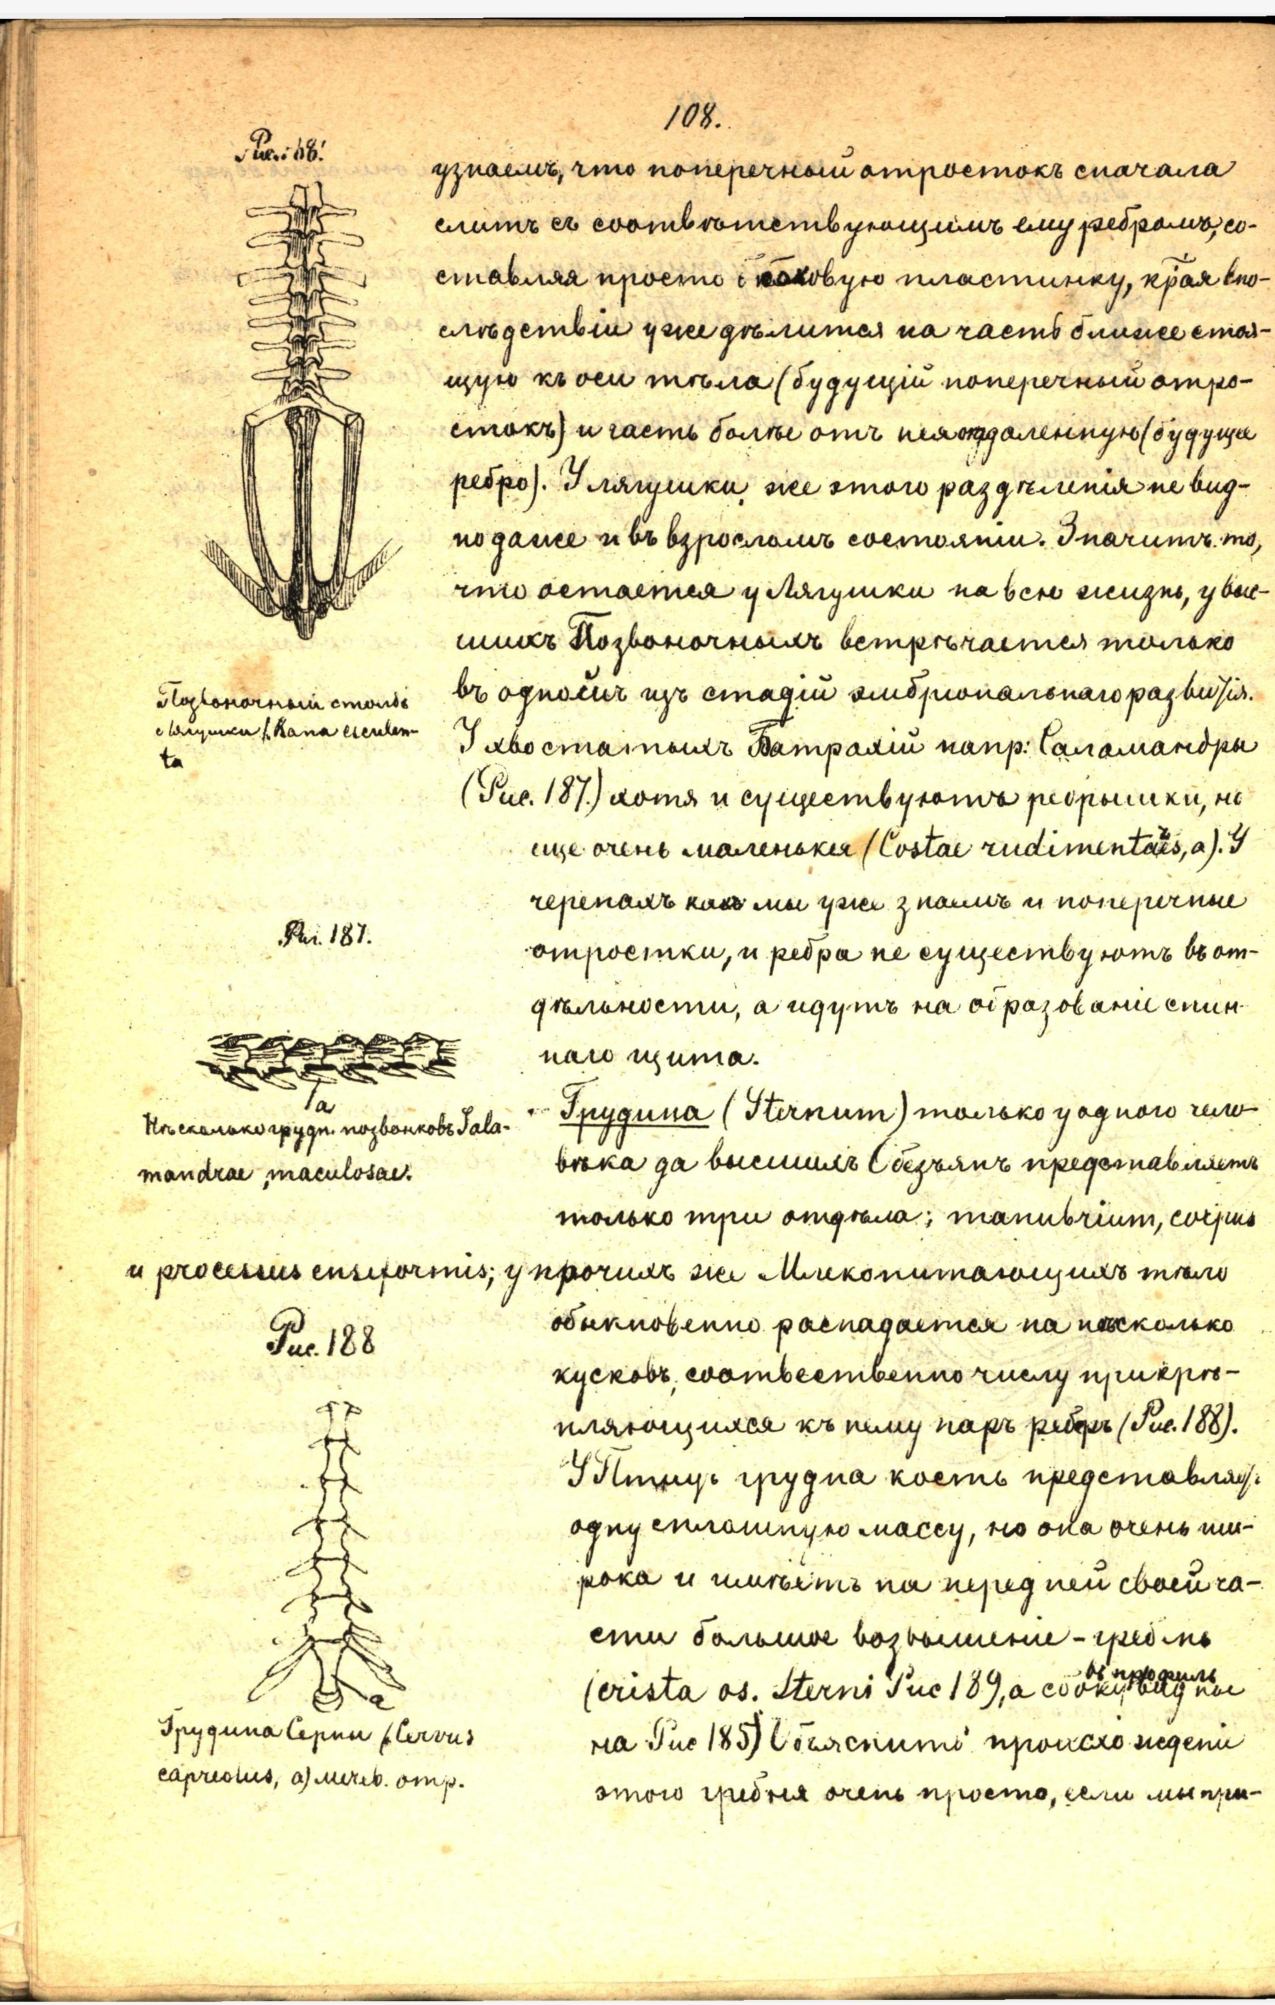 108.
узнаемъ, что поперечный отростокъ сначала
слитъ съ соотвѣтствующимъ ему ребромъ, со-
ставляя просто боковую пластинку, края впо-
слѣдствіи уже дѣлится на часть ближе стоя-
щую къ оси тѣла (будущій поперечный отро-
стокъ) и часть болѣе отъ нея отдаленную (будуще
ребро). У лягушки же этого раздѣленія не вид-
но даже и въ взросломъ состояніи. Значитъ то,
что остается у Лягушки на всю жизнь, у выс-
шихъ Позвоночныхъ встрѣчается только
въ одной изъ стадій эмбріональнаго развитія.
Позвоночный столбъ
Лягушки (Rana esculen-
ta
У хвостатыхъ Батрахій напр: Саламандры
(Рис. 187.) хотя и существуютъ ребрышки, но
еще очень маленькія (Costae rudimentaes, a). У
черепахъ какъ мы уже знаемъ и поперечные
Рис. 187.
отростки, и ребра не существуютъ въ от-
дѣльности, а идутъ на образованіе спин-
наго щита.
a
Нѣсколько грудн. позвонковъ Sala-
mandrae maculosae.
Грудина (Sternum) только у одного чело-
вѣка да высшихъ Обезьянъ представляетъ
только три отдѣла; manubrium, corpus
и processus ensiformis; у прочихъ же Млекопитающихъ тѣло
Рис. 188
обыкновенно распадается на нѣсколько
кусковъ, соотвественно числу прикрѣ-
пляющихся къ нему паръ реберъ (Рис. 188).
У Птицъ грудна кость представляет
одну сплошную массу, но она очень ши-
рока и имѣетъ на передней своей ча-
сти большое возвышеніе - гребень
(crista os. Sterni Рис 189, а сбоку въ профиль видное
a
Грудина Серны (Cervus
capreolus, a) мечев. отр.
на Рис 185) Объяснить происхожденіе
этого гребня очень просто, если мы при-